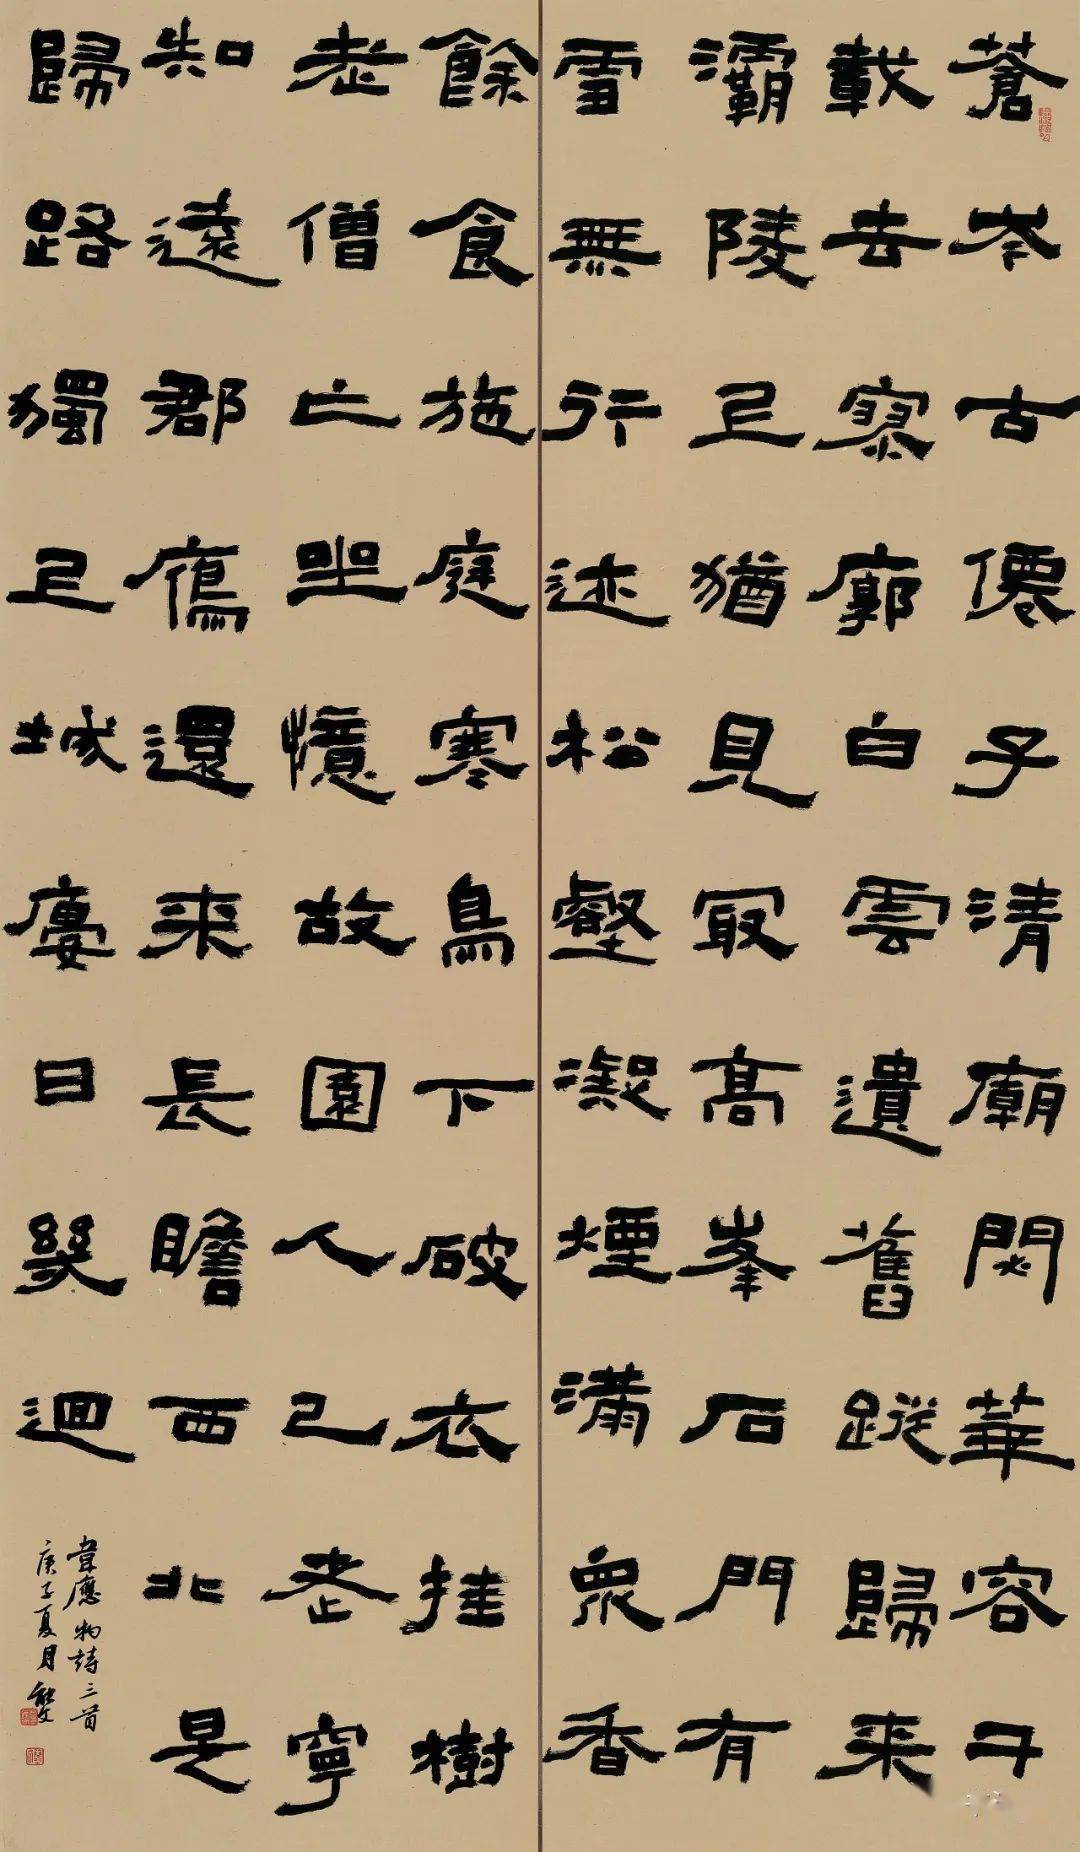 蒼岑古僊子清廟閟華容千
載去寥廓白雲遺舊蹤歸來
灞陵上猶見冣高峯石門有
雪無行迹松壑凝煙滿衆香
餘食施庭寒鳥下破衣挂樹
老僧亡坐憶故園人已老寧
知遠郡鴈還来長瞻西北是
歸路獨上城廔日幾迴
韋應物詩三首
庚子夏月